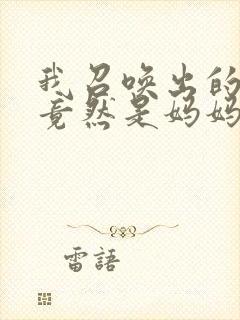 我召唤出的
竟然是妈妈
雷語